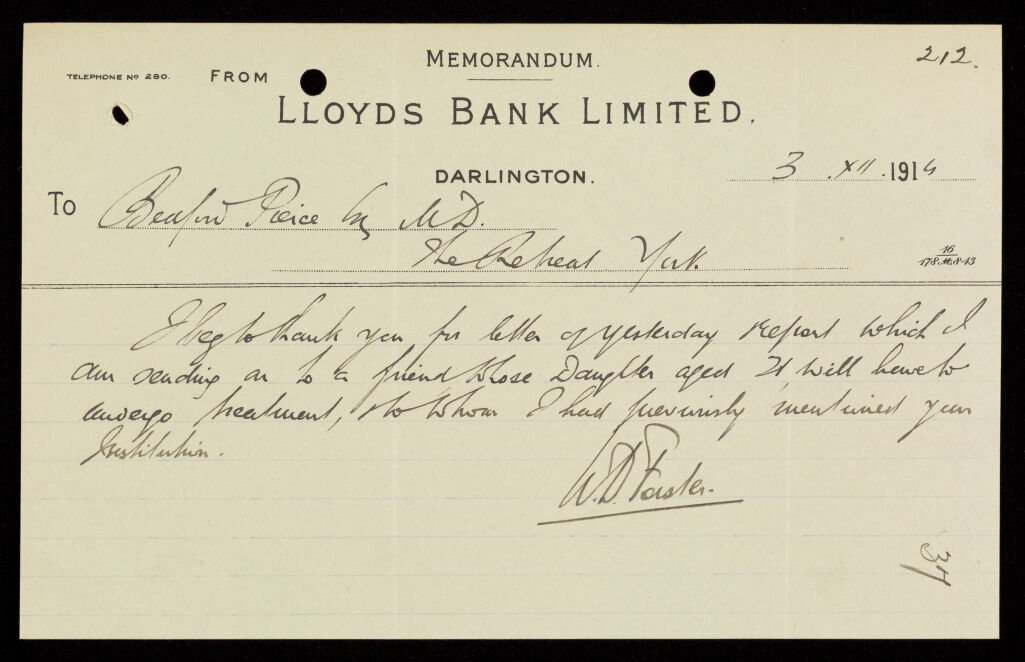 MEMORANDUM.
212.
TELEPHONE No 280.
FROM
LLOYDS BANK LIMITED.
DARLINGTON.
3 .XII.1914
To Bedford Pierce Esq M.D.
The Retreat York.
16
178.M.8-13
I beg to thank you for letter of yesterday & report which I
am sending on to a friend whose Daughter aged 21, will have to
undergo treatment, & to whom I had previously mentioned your
Institution.
W.D. Forster.
34